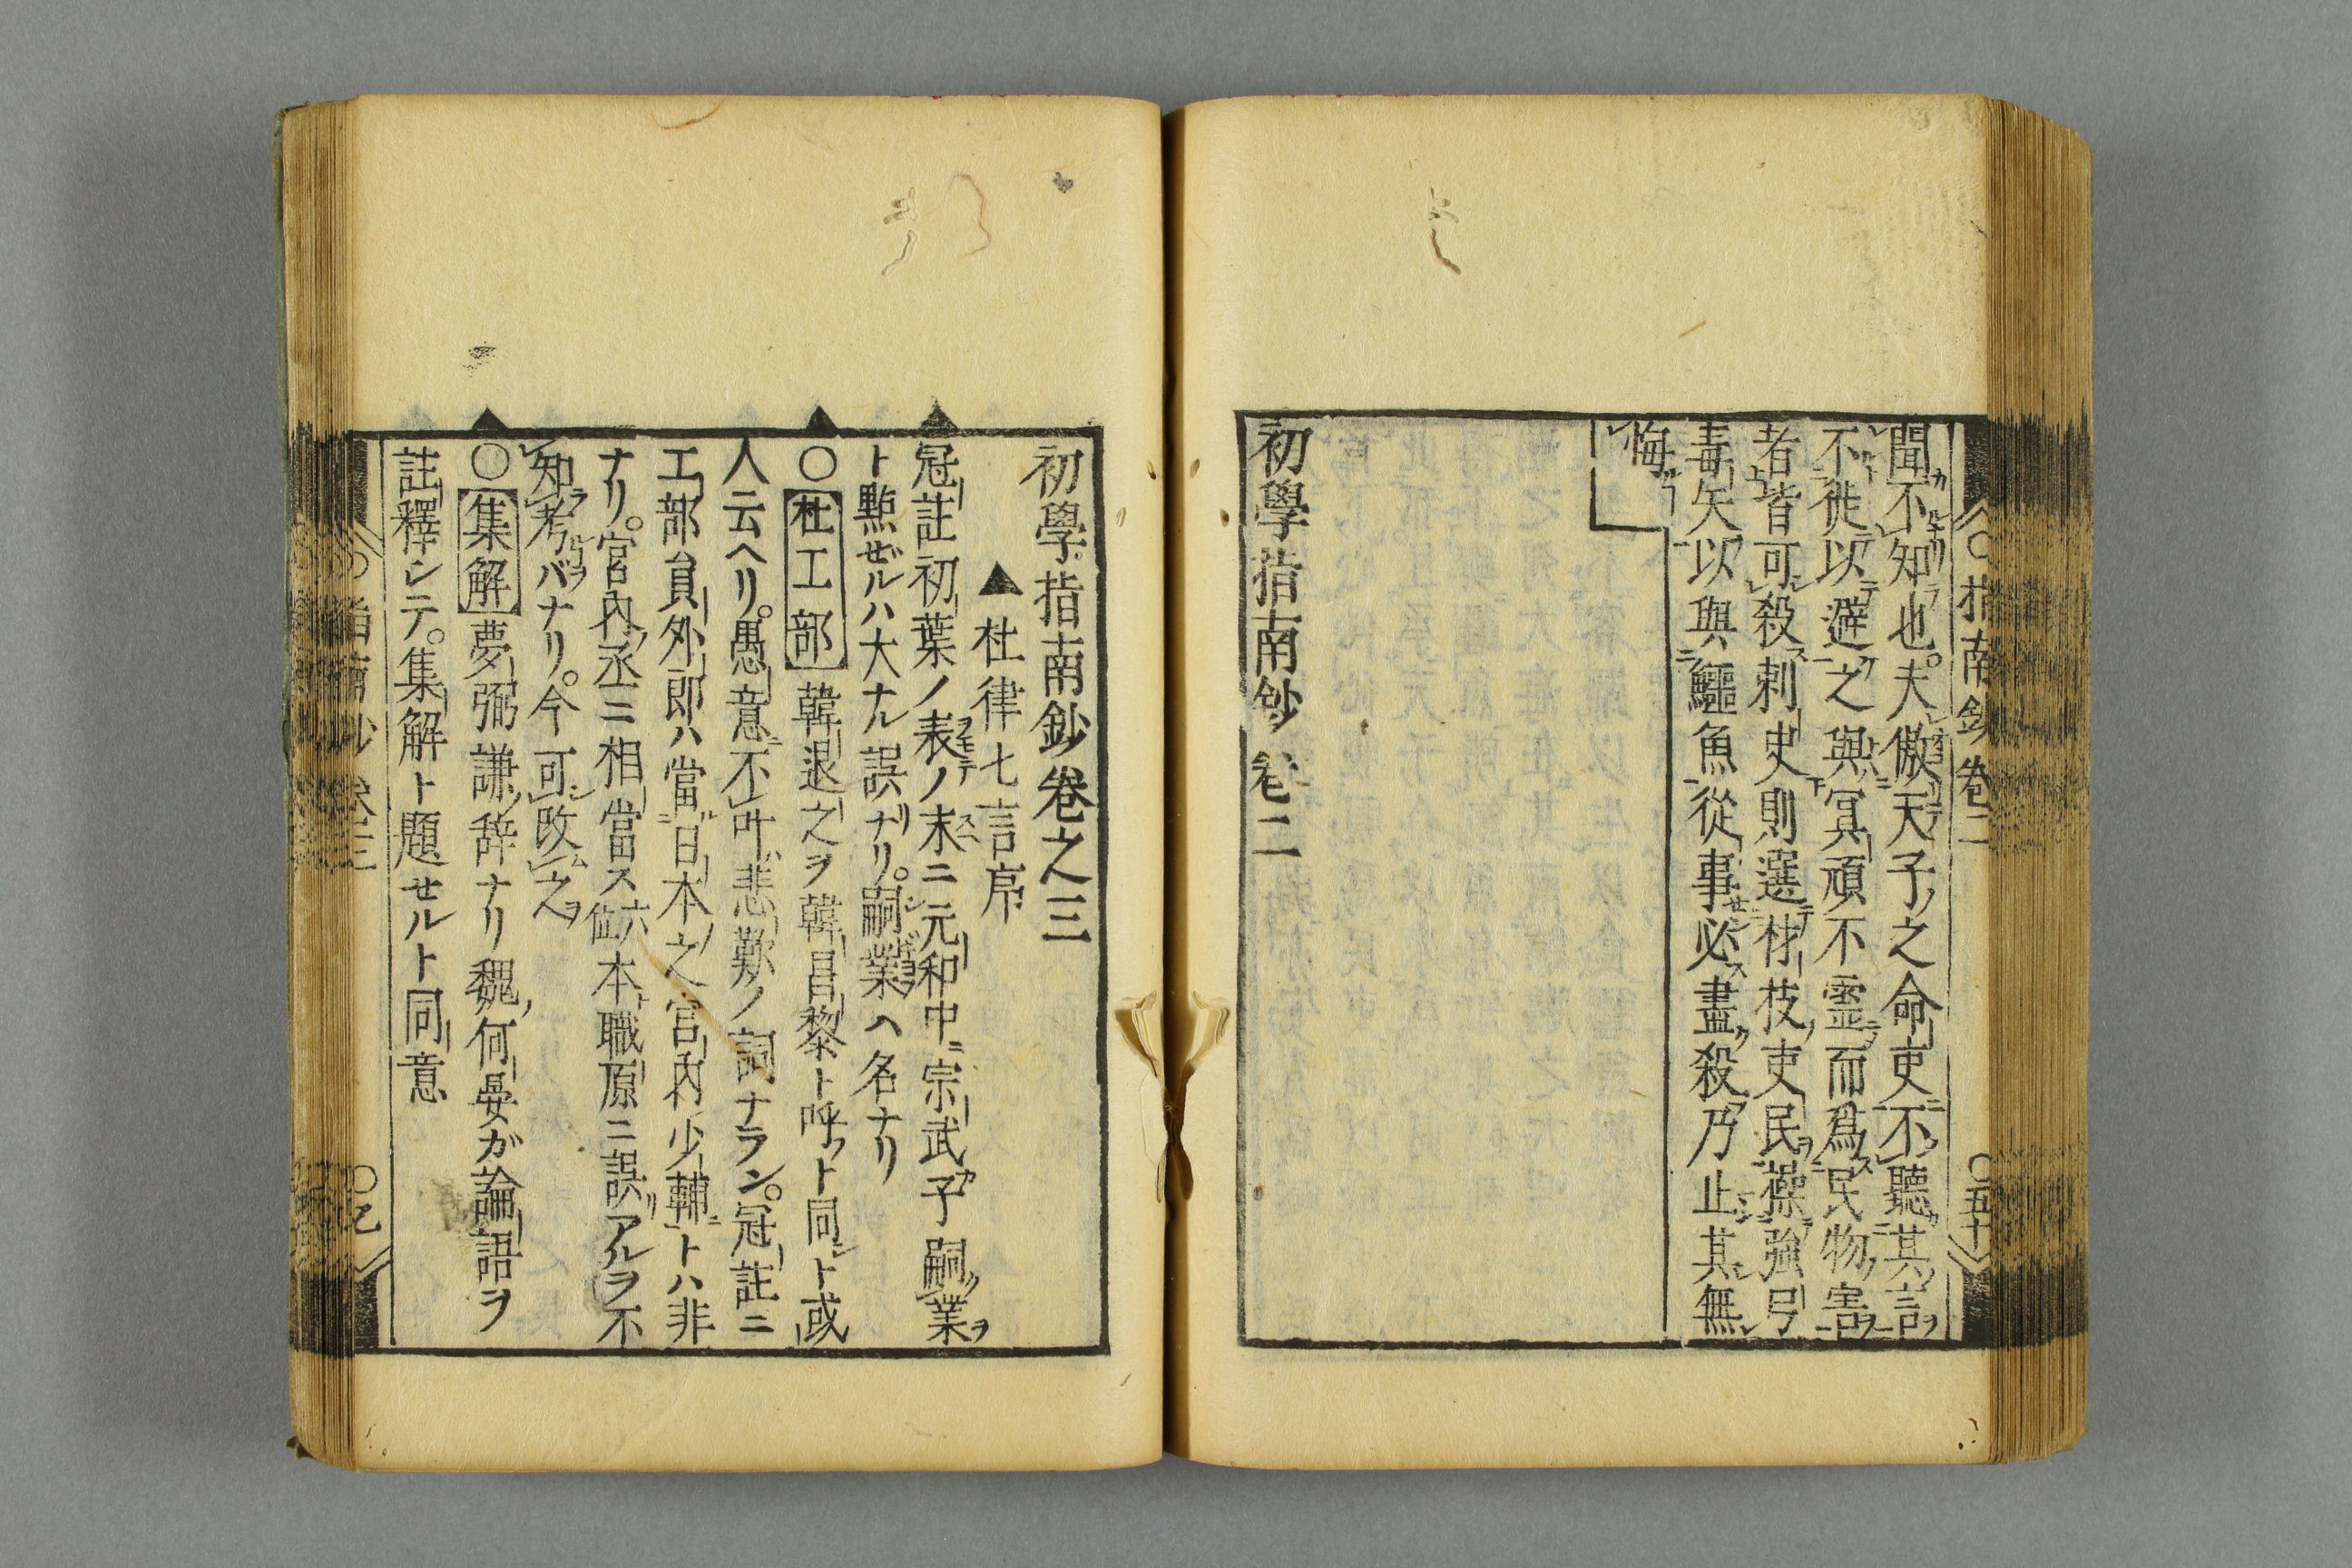 指南鈔卷二
〇五十
聞不知也。夫傲天子之命吏不聽其言
不徙以避之與冥頑不霊而爲民物害
者皆可殺刺史則選材技吏民操強弓
毒矢以與鱷魚從事必盡殺乃止其無
悔
初學指南鈔卷二
初學指南鈔卷之三
▲杜律七言序
冠註初葉ノ表ノ末ニ元和中宗武子嗣業ヲ
ト點ゼルハ大ナル誤ナリ。嗣業ハ名ナリ
〇杜工部 韓退之ヲ韓昌黎ト呼フト同シト或
人云ヘリ。愚意不叶悲歎ノ詞ナラン。冠註ニ
工部員外郎ハ當日本之宮内少輔トハ非
ナリ。宮内丞ニ相當ス六位本職原ニ誤リアルヲ不
知考バナリ。今可改之ヲ
〇集解 夢弼謙辞ナリ魏何晏ガ論語ヲ
註釋シテ。集解ト題セルト同意
指南鈔 卷三
〇乙